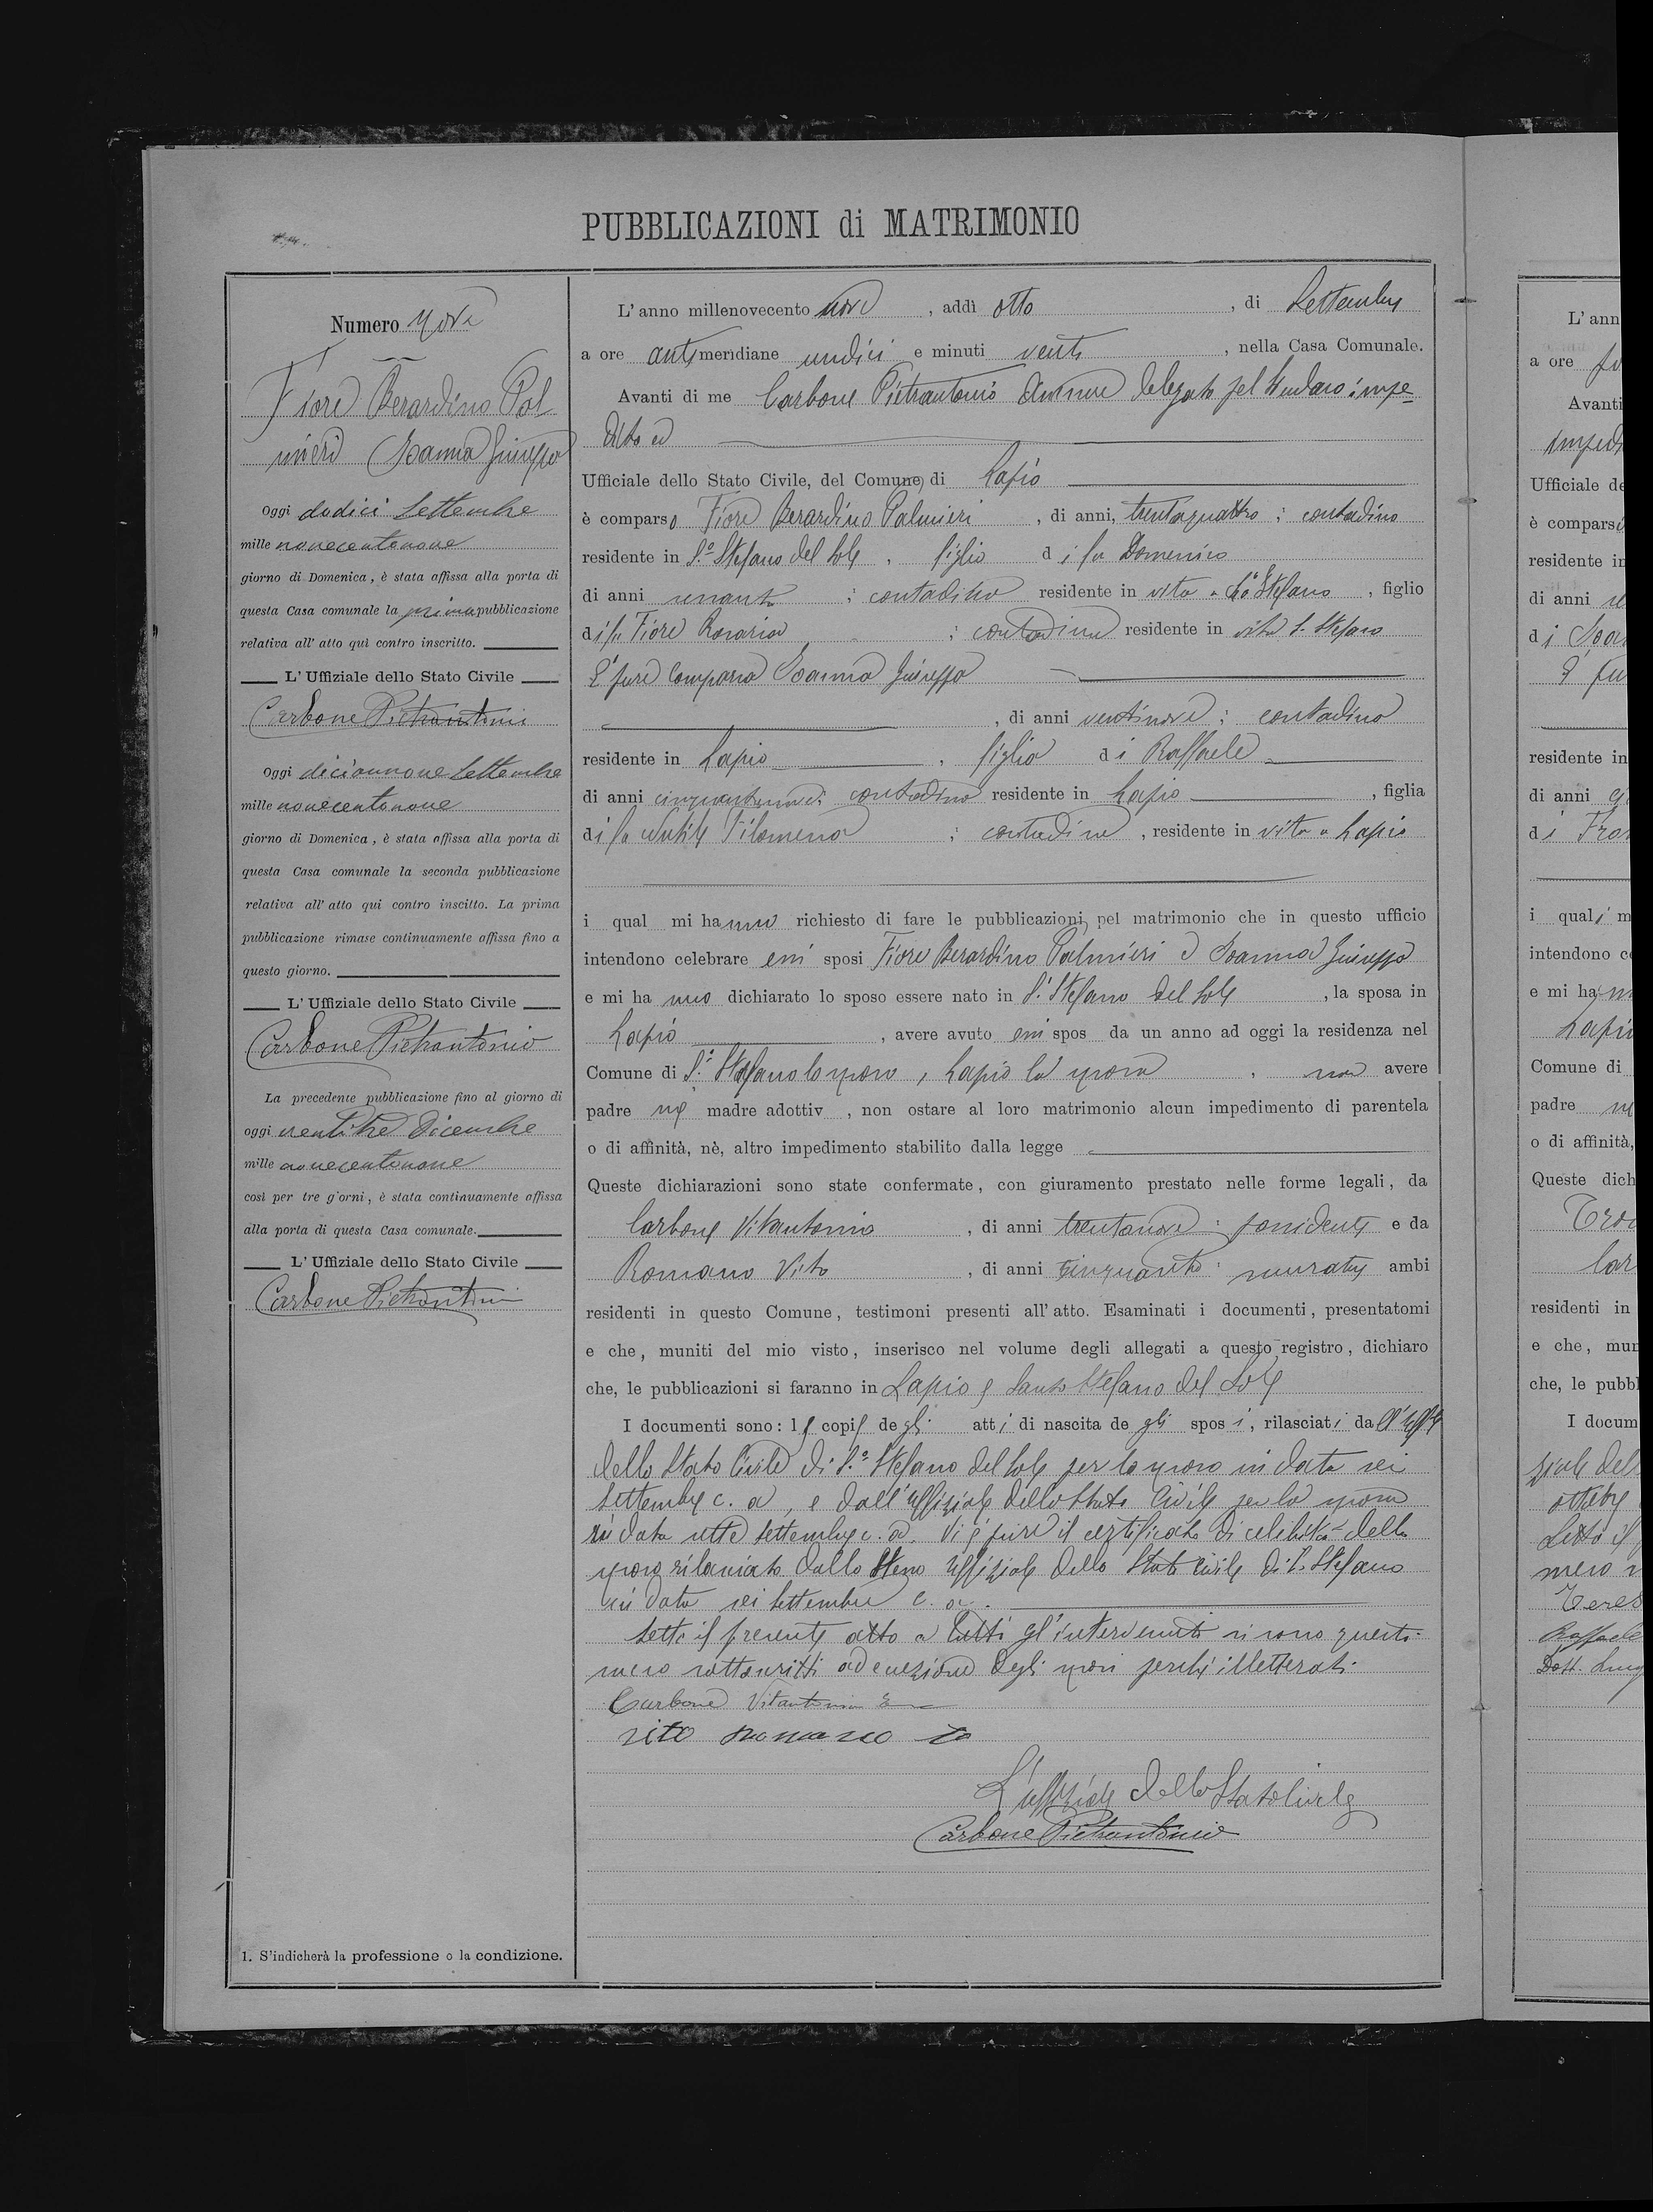 PUBBLICAZIONI di MATRIMONIO
Numero Nove
Fiore Berardino Pal
mieri Scanna Giuseppa
Oggi dodici Settembre
mille novecentonove
giorno di Domenica, è stata affissa alla porta di
questa Casa comunale la prima pubblicazione
relativa all' atto quì contro inscritto.
L' Uffiziale dello Stato Civile
Carbone Pietrantonio
Oggi diciannove Settembre
mille novecentonove
giorno di Domenica, è stata affissa alla porta di
questa Casa comunale la seconda pubblicazione
relativa all' atto qui contro inscitto. La prima
pubblicazione rimase continuamente affissa fino a
questo giorno.
L' Uffiziale dello Stato Civile
Carbone Pietrantonio
La precedente pubblicazione fino al giorno di
oggi ventitre Dicembre
mille novecentonove
così per tre giorni, è stata continuamente affissa
alla porta di questa Casa comunale.
L' Uffiziale dello Stato Civile
Carbone Pietrantonio
1. S'indicherà la professione o la condizione.
L' anno millenovecento nove, addì otto, di Settembre
a ore antimeridiane undici e minuti venti, nella Casa Comunale.
Avanti di me Carbone Pietrantonio delegato pel Sindaco impe-
dito ed
Ufficiale dello Stato Civile, del Comune di Lapio
è comparso Fiore Berardino Palmieri, di anni, trentaquattro; contadino
residente in S.o Stefano del Sole, figlio di fu Domenico
di anni ; contadino residente in vita a S.o Stefano, figlio
di fu Fiore Rosaria ; contadina residente in vita S. Stefano
È pure comparsa Scanna Giuseppa
, di anni ventinove; contadina
residente in Lapio, figlia di Raffaele
di anni contadino residente in Lapio, figlia
di fu Filomena ; contadina, residente in vita a Lapio
i qual mi hanno richiesto di fare le pubblicazioni pel matrimonio che in questo ufficio
intendono celebrare essi sposi Fiore Berardino Palmieri e Scanna Giuseppa
e mi hanno dichiarato lo sposo essere nato in S. Stefano del Sole, la sposa in
Lapio, avere avuto essi spos da un anno ad oggi la residenza nel
Comune di S. Stefano lo sposo, Lapio la sposa, non avere
padre nè madre adottiv, non ostare al loro matrimonio alcun impedimento di parentela
o di affinità, nè, altro impedimento stabilito dalla legge
Queste dichiarazioni sono state confermate, con giuramento prestato nelle forme legali, da
Carbone Vitantonio, di anni trentanove; possidente e da
Romano Vito, di anni cinquanta; muratore ambi
residenti in questo Comune, testimoni presenti all' atto. Esaminati i documenti, presentatomi
e che, muniti del mio visto, inserisco nel volume degli allegati a questo registro, dichiaro
che, le pubblicazioni si faranno in Lapio e Santo Stefano del Sole
I documenti sono: le copie degli atti di nascita degli sposi, rilasciati dall'Uffle
dello Stato Civile di S.o Stefano del Sole per lo sposo in data sei
Settembre c. a., e dall'Uffiziale dello Stato Civile per la sposa
in data sette settembre c. a. Vi è pure il certificato di celibità dello
sposo rilasciato dallo stesso Uffiziale dello Stato Civile di S. Stefano
in data sei Settembre c. a.
Letto il presente atto a tutti gl'intervenuti si sono questi
meco sottoscritti ad eccezione degli sposi perchè illetterati.
Carbone Vitantonio
vito romano
L'uffiziale dello Stato Civile
Carbone Pietrantonio
L' ann
a ore
Avanti
Ufficiale de
è compars
residente in
di anni
di
residente in
di anni
di
i quali m
intendono c
e mi ha
Lapio
Comune di
padre
o di affinità,
Queste dich
residenti in
e che, mun
che, le pubbl
I docum